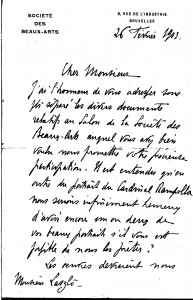 SOCIÉTÉ
DES
BEAUX-ARTS
3, RUE DE L'INDUSTRIE
BRUXELLES
26 février 1903.
Cher Monsieur
J'ai l'honneur de vous adresser sous
pli séparé les divers documents
relatifs au Salon de la Société des
Beaux-Arts auquel vous avez bien
voulu nous promettre votre précieuse
participation. Il est entendu qu'en
outre du portrait du Cardinal Rampolla
nous serions infiniment heureux
d'avoir encore un ou deux de
vos beaux portraits s'il vous est
possible de nous les prêter ?
Les œuvres devraient nous
Monsieur László.